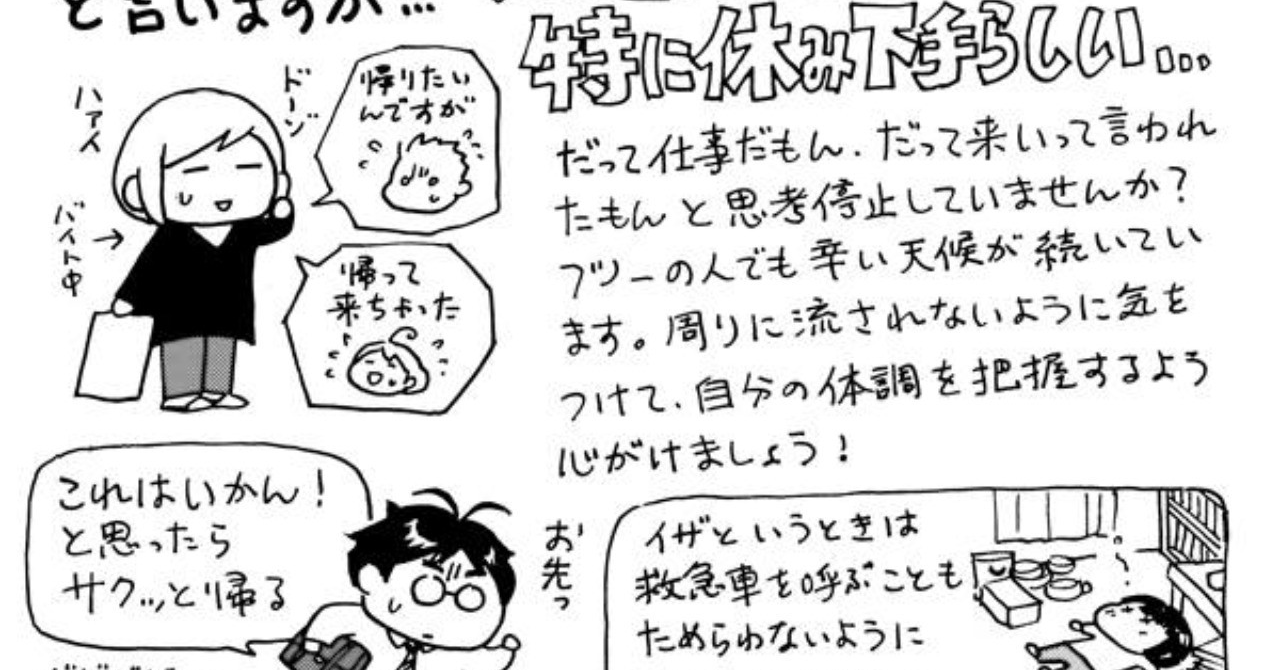 と言いますが…
特に休み下手らしい…
ハァイ
バイト中
ドーゾ
帰りたい
んですが
帰って
来ちゃった
だって仕事だもん、だって来いって言われ
たもんと思考停止していませんか?
フツーの人でも辛い天候が続いてい
ます。周りに流されないように気を
つけて、自分の体調を把握するよう
心がけましょう!
これはいかん!
と思ったら
サクッと帰る
お先っ
イザというときは
救急車を呼ぶことも
ためらわないように